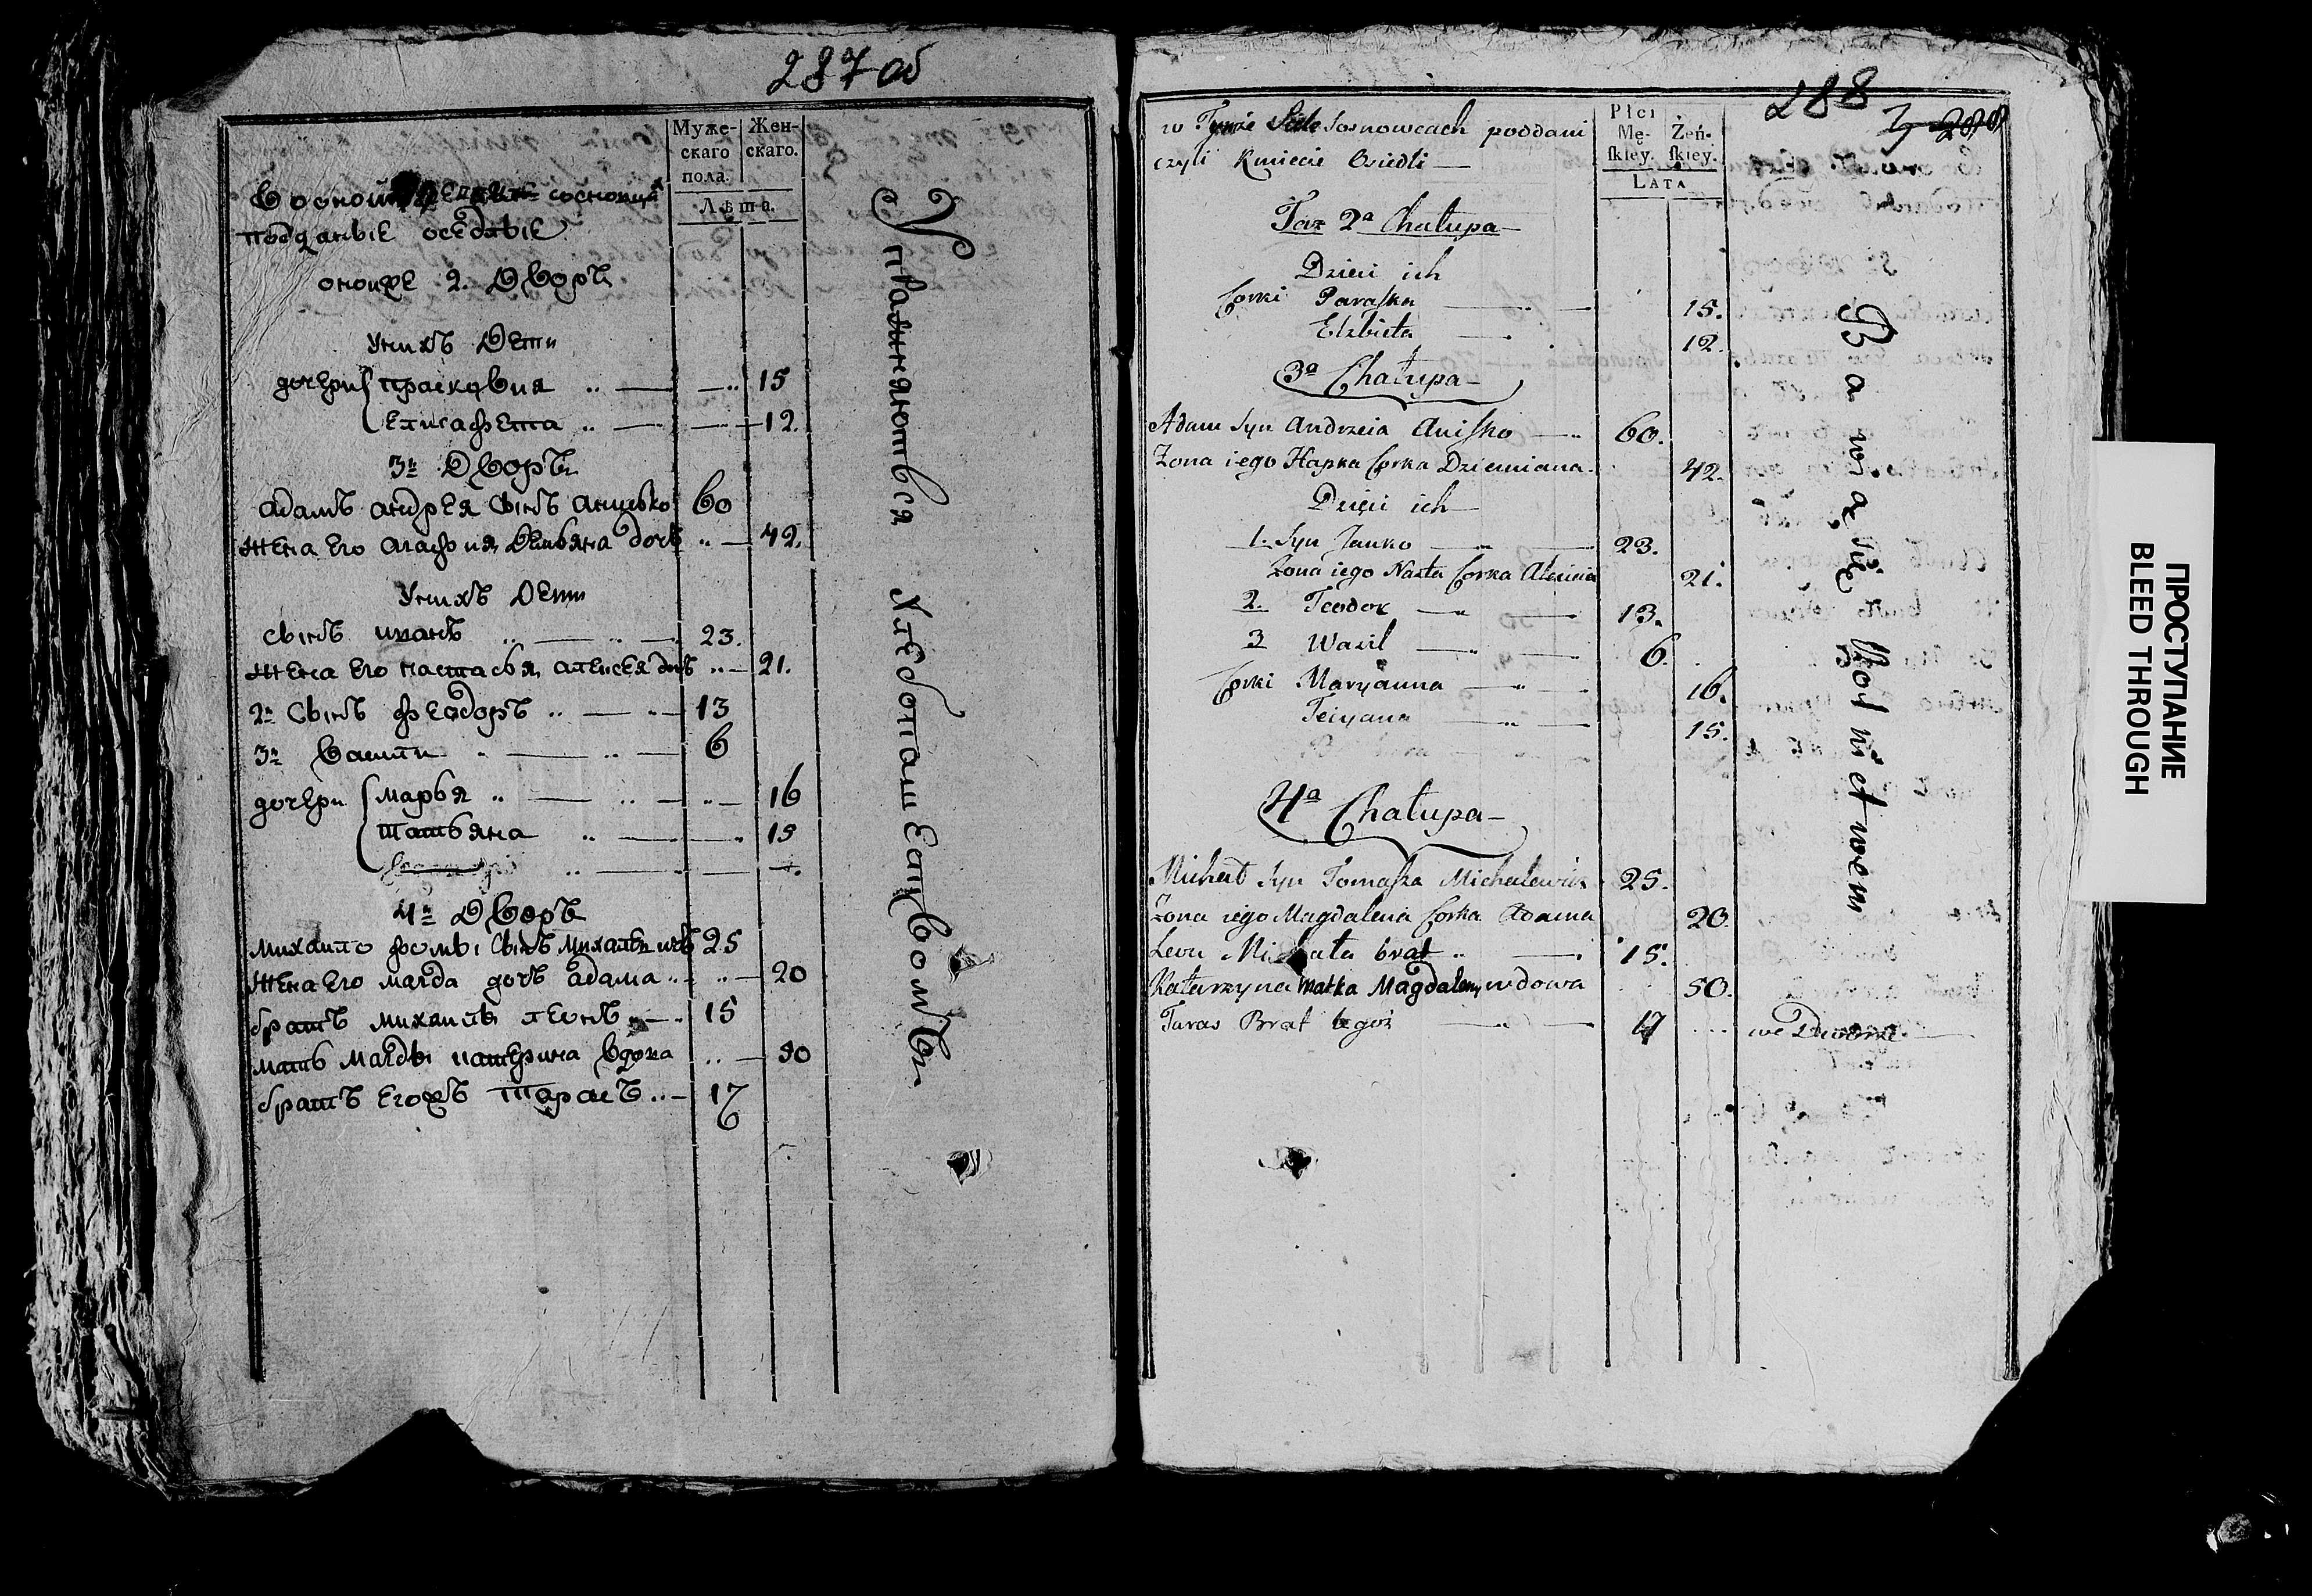 287 об
Муже-
скаго
пола.
Жен-
скаго.
Лѣта.
сосновцах
подданые оседлые
2. Дворъ
У нихъ Дети
дочери Прасковия .. — —.. 15
Елисафета .. — — 12.
3й Дворъ
Адамъ Андрея Сынъ Анисько 60
Жена Его Агафия Демьяна дочь .. — 42.
У нихъ Дети
Сынъ Иванъ .. — .. — 23.
Жена Его Настасья Алексея дочь .. — 21.
2й Сынъ Феодоръ .. — .. — 13
3й Васили .. — .. — 6
дочери Марья .. — .. — .. — 16
Татьяна .. — — .. 15
4й Дворъ
Михайло Фомы Сынъ 25
Жена Его Магда дочь Адама .. .. — 20
братъ Михайлы Леонъ .. — .. 15
мать Магды Катерина вдова .. — 50
братъ Егожъ Тарасъ .. — 17
6
Упражняются Хлебопашеством
288
w Tymże Siele Sosnowcach poddani
czyli Kmiecie Osiedli —
Płci
Mę-
ſkiey.
Żeń-
ſkiey.
Lata
Taż 2a Chałupa —
Dzieci ich
Corki Paraſka — .. — 15.
Elzbieta — . 12.
3a Chałupa —
Adam Syn Andrzeia Aniſko — .. 60.
Zona iego Hapka Corka Dziemiana. 42.
Dzieci ich —
1. Syn Janko — .. — 23.
Zona iego Nasta Corka Alexieia 21.
2. Teodor — .. — 13.
3 Wasil — .. — 6.
Corki Maryanna — .. — 16.
Teciyana — .. — 15.
4a Chałupa —
Michał Syn Tomaſza Michalewicz 25.
Zona iego Magdalena Corka Adama 20.
Leon Michała brat .. — 15.
Katarzyna Matka Magdaleny wdowa 50.
Taras Brat tegoż — .. — 17 we Dworze —
Bawią się Rolnictwem
ПРОСТУПАНИЕ
BLEED THROUGH